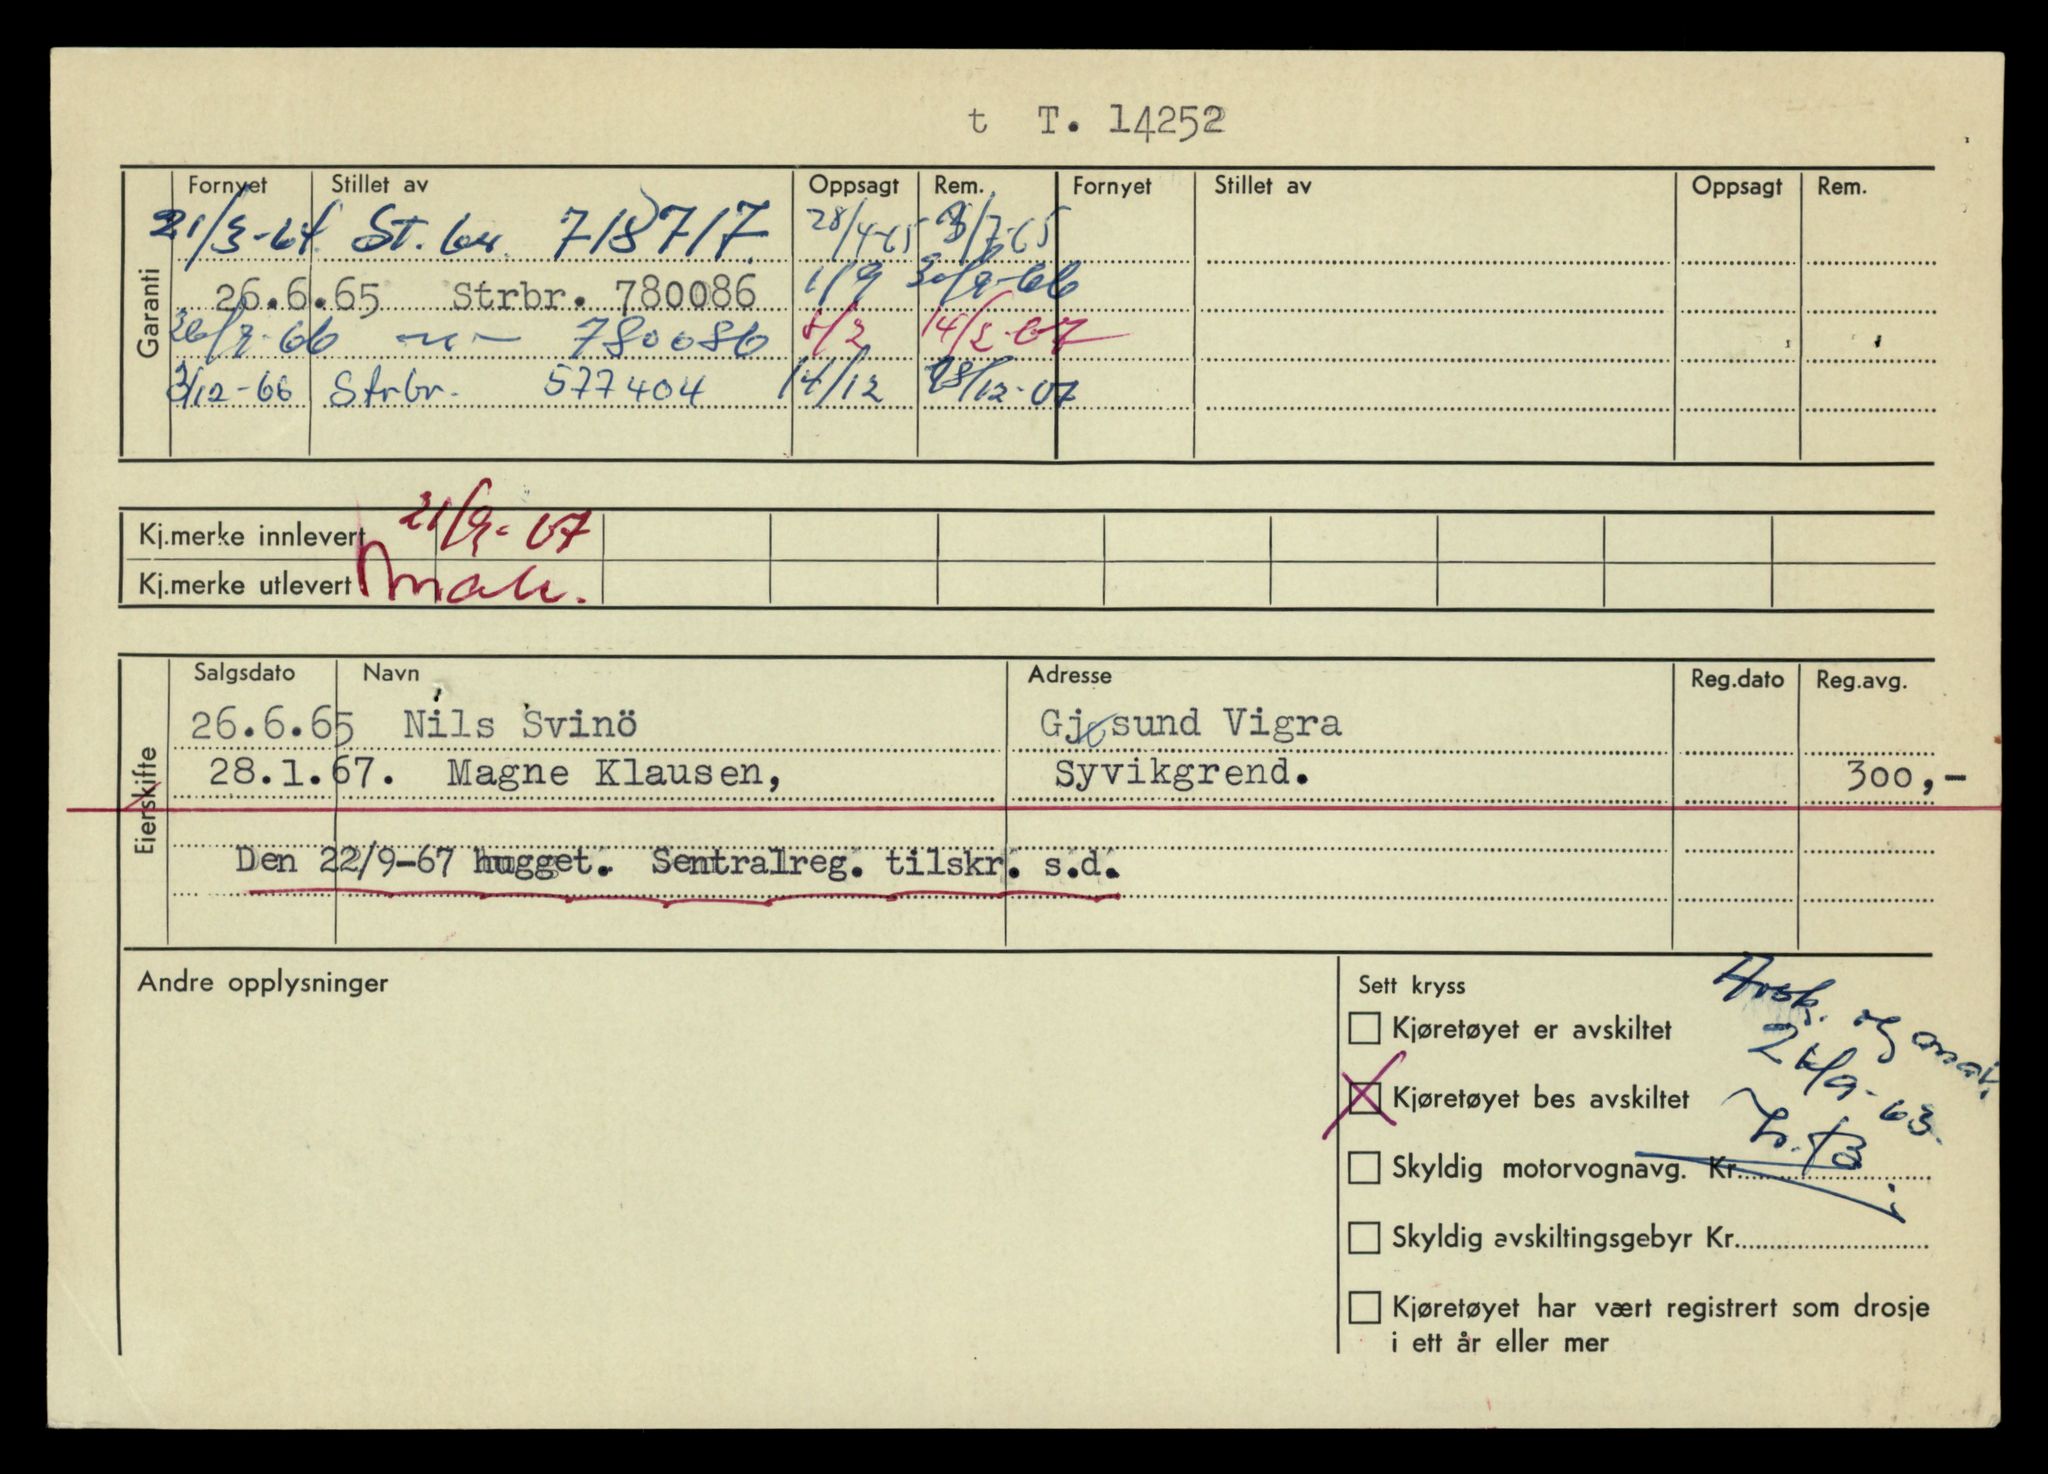 t T. 14252
Garanti
Fornyet Stillet av Oppsagt Rem. Fornyet Stillet av Oppsagt Rem.
21/3-64 St.br. 718717 28/4-65 3/7-65
26.6.65 Strbr. 780086 1/9 30/9-66
780086 14/2-67
3/12-66 Strbr. 577404 14/12 28/12-67
Kj.merke innlevert 21/9-67
Kj.merke utlevert
Eierskifte
Salgsdato Navn Adresse Reg.dato Reg.avg.
26.6.65 Nils Svinö Gjøsund Vigra
28.1.67. Magne Klausen, Syvikgrend. 300,-
Den 22/9-67 hugget. Sentralreg. tilskr. s.d.
Andre opplysninger
Sett kryss
Kjøretøyet er avskiltet
Kjøretøyet bes avskiltet
Skyldig motorvognavg. Kr
Skyldig avskiltingsgebyr Kr
Kjøretøyet har vært registrert som drosje
i ett år eller mer
Avsk. og